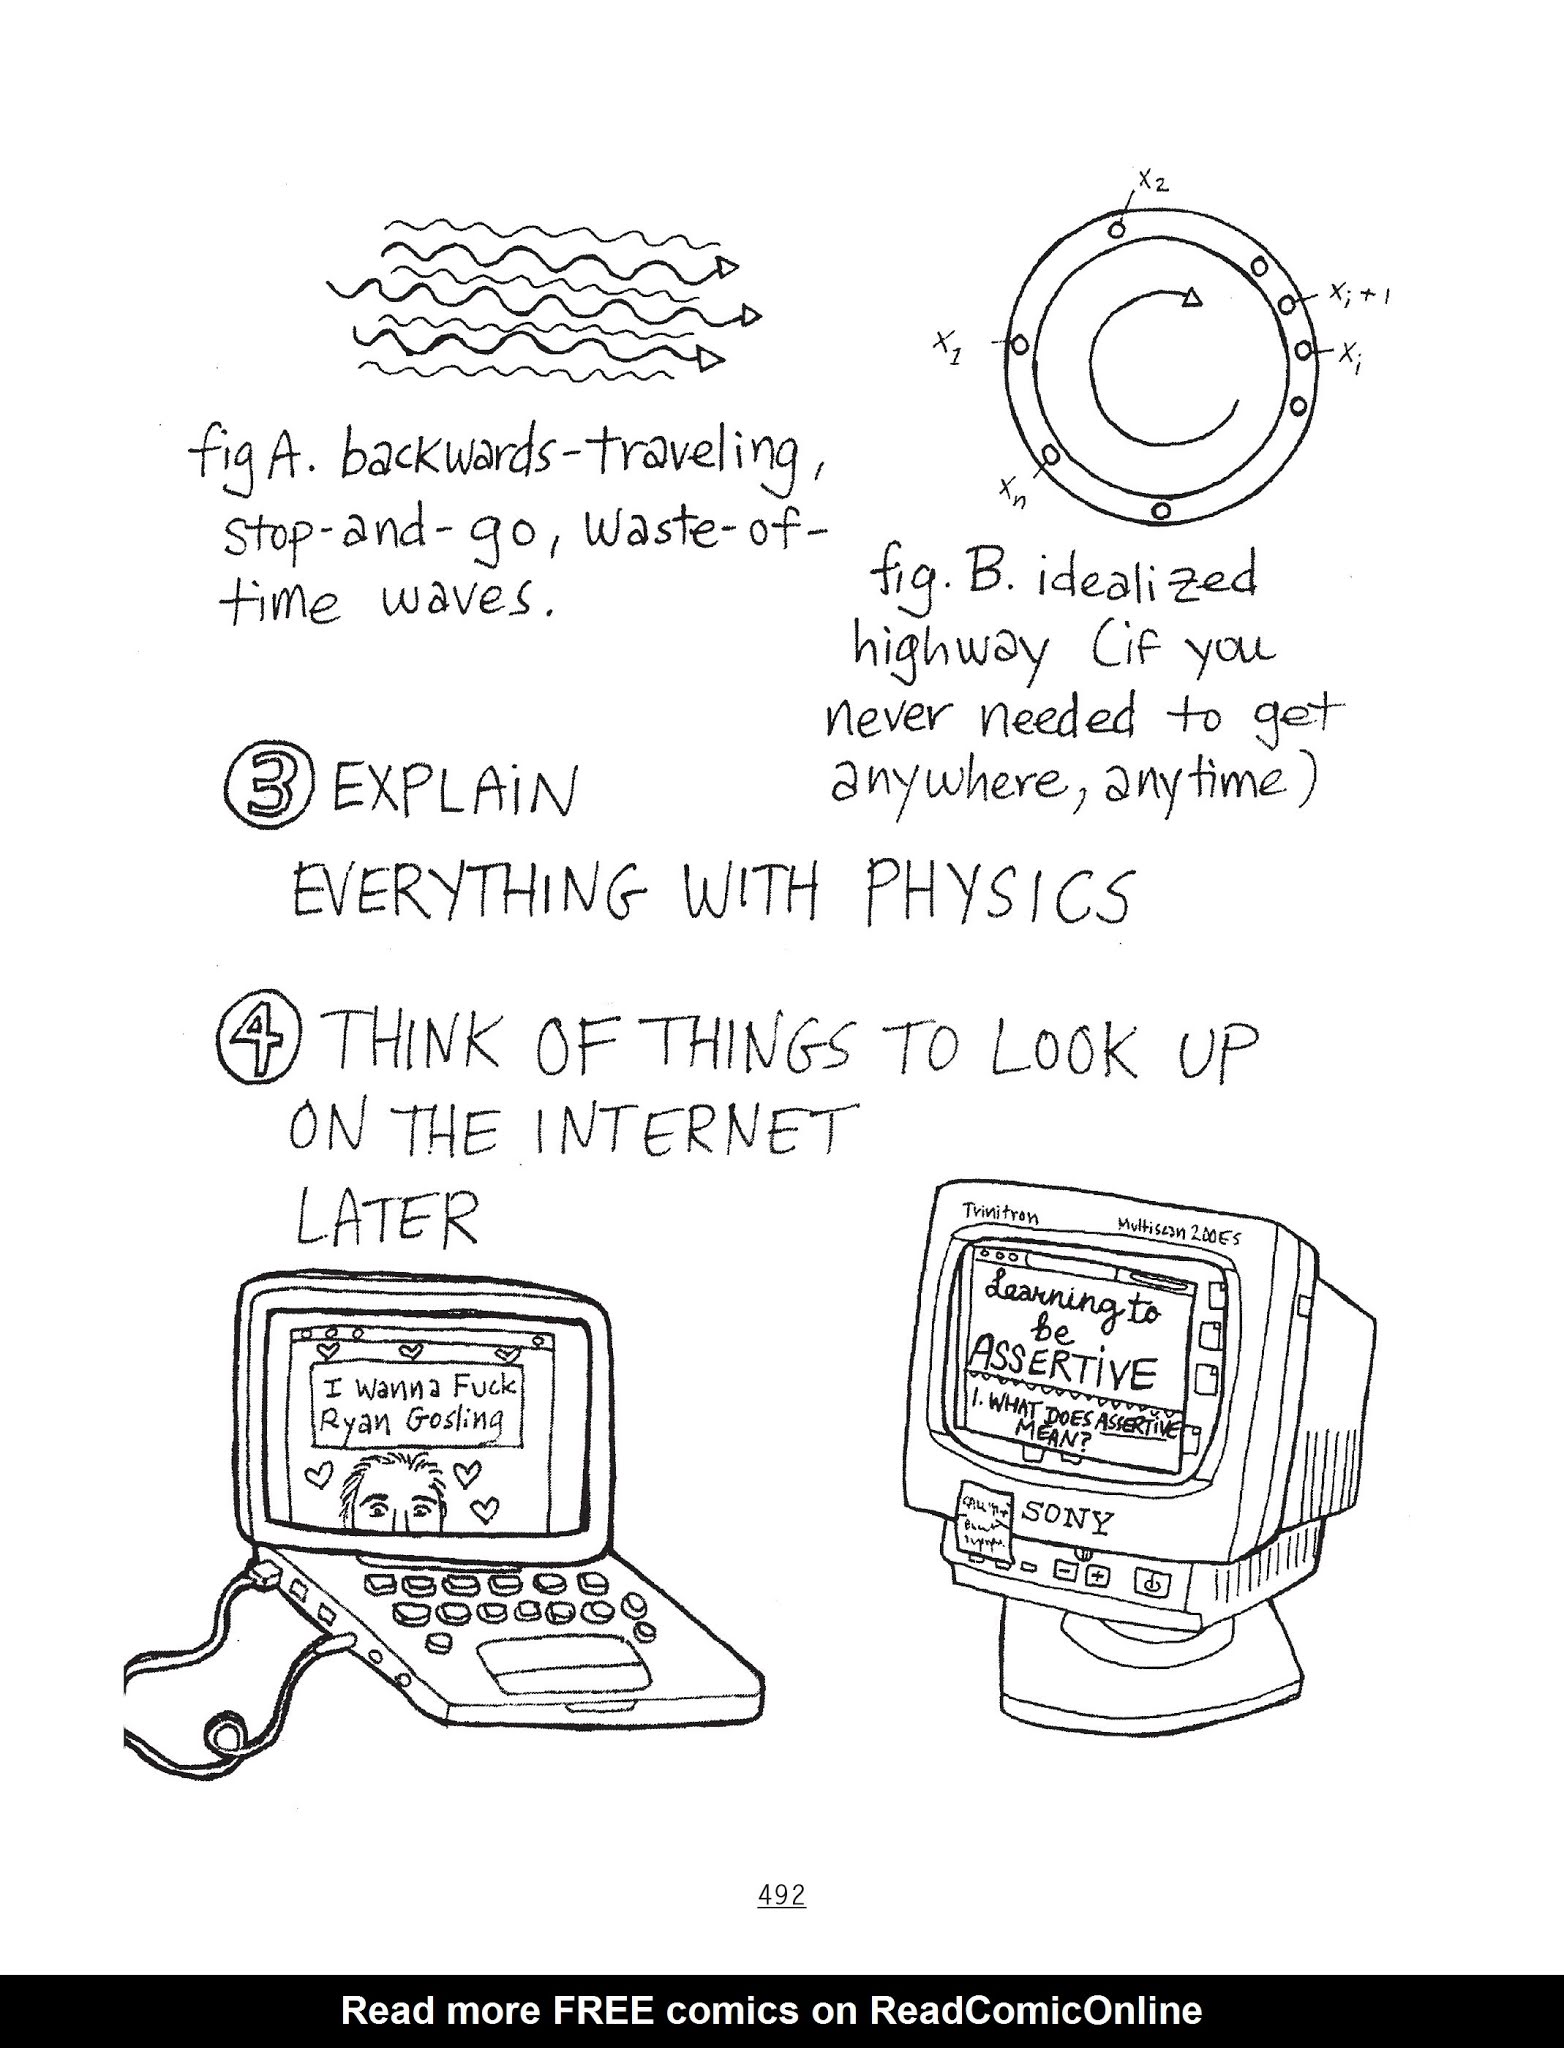 X2
Xi+1
X1
Xi
Xn
fig A. backwards-traveling,
stop-and-go, waste-of-
time waves.
fig. B. idealized
highway (if you
never needed to get
anywhere, anytime)
3 EXPLAIN
EVERYTHING WITH PHYSICS
4 THINK OF THINGS TO LOOK UP
ON THE INTERNET
LATER
I Wanna Fuck
Ryan Gosling
Trinitron Multiscan 200ES
Learning to
be
ASSERTIVE
1. WHAT DOES ASSERTIVE
MEAN?
SONY
492
Read more FREE comics on ReadComicOnline